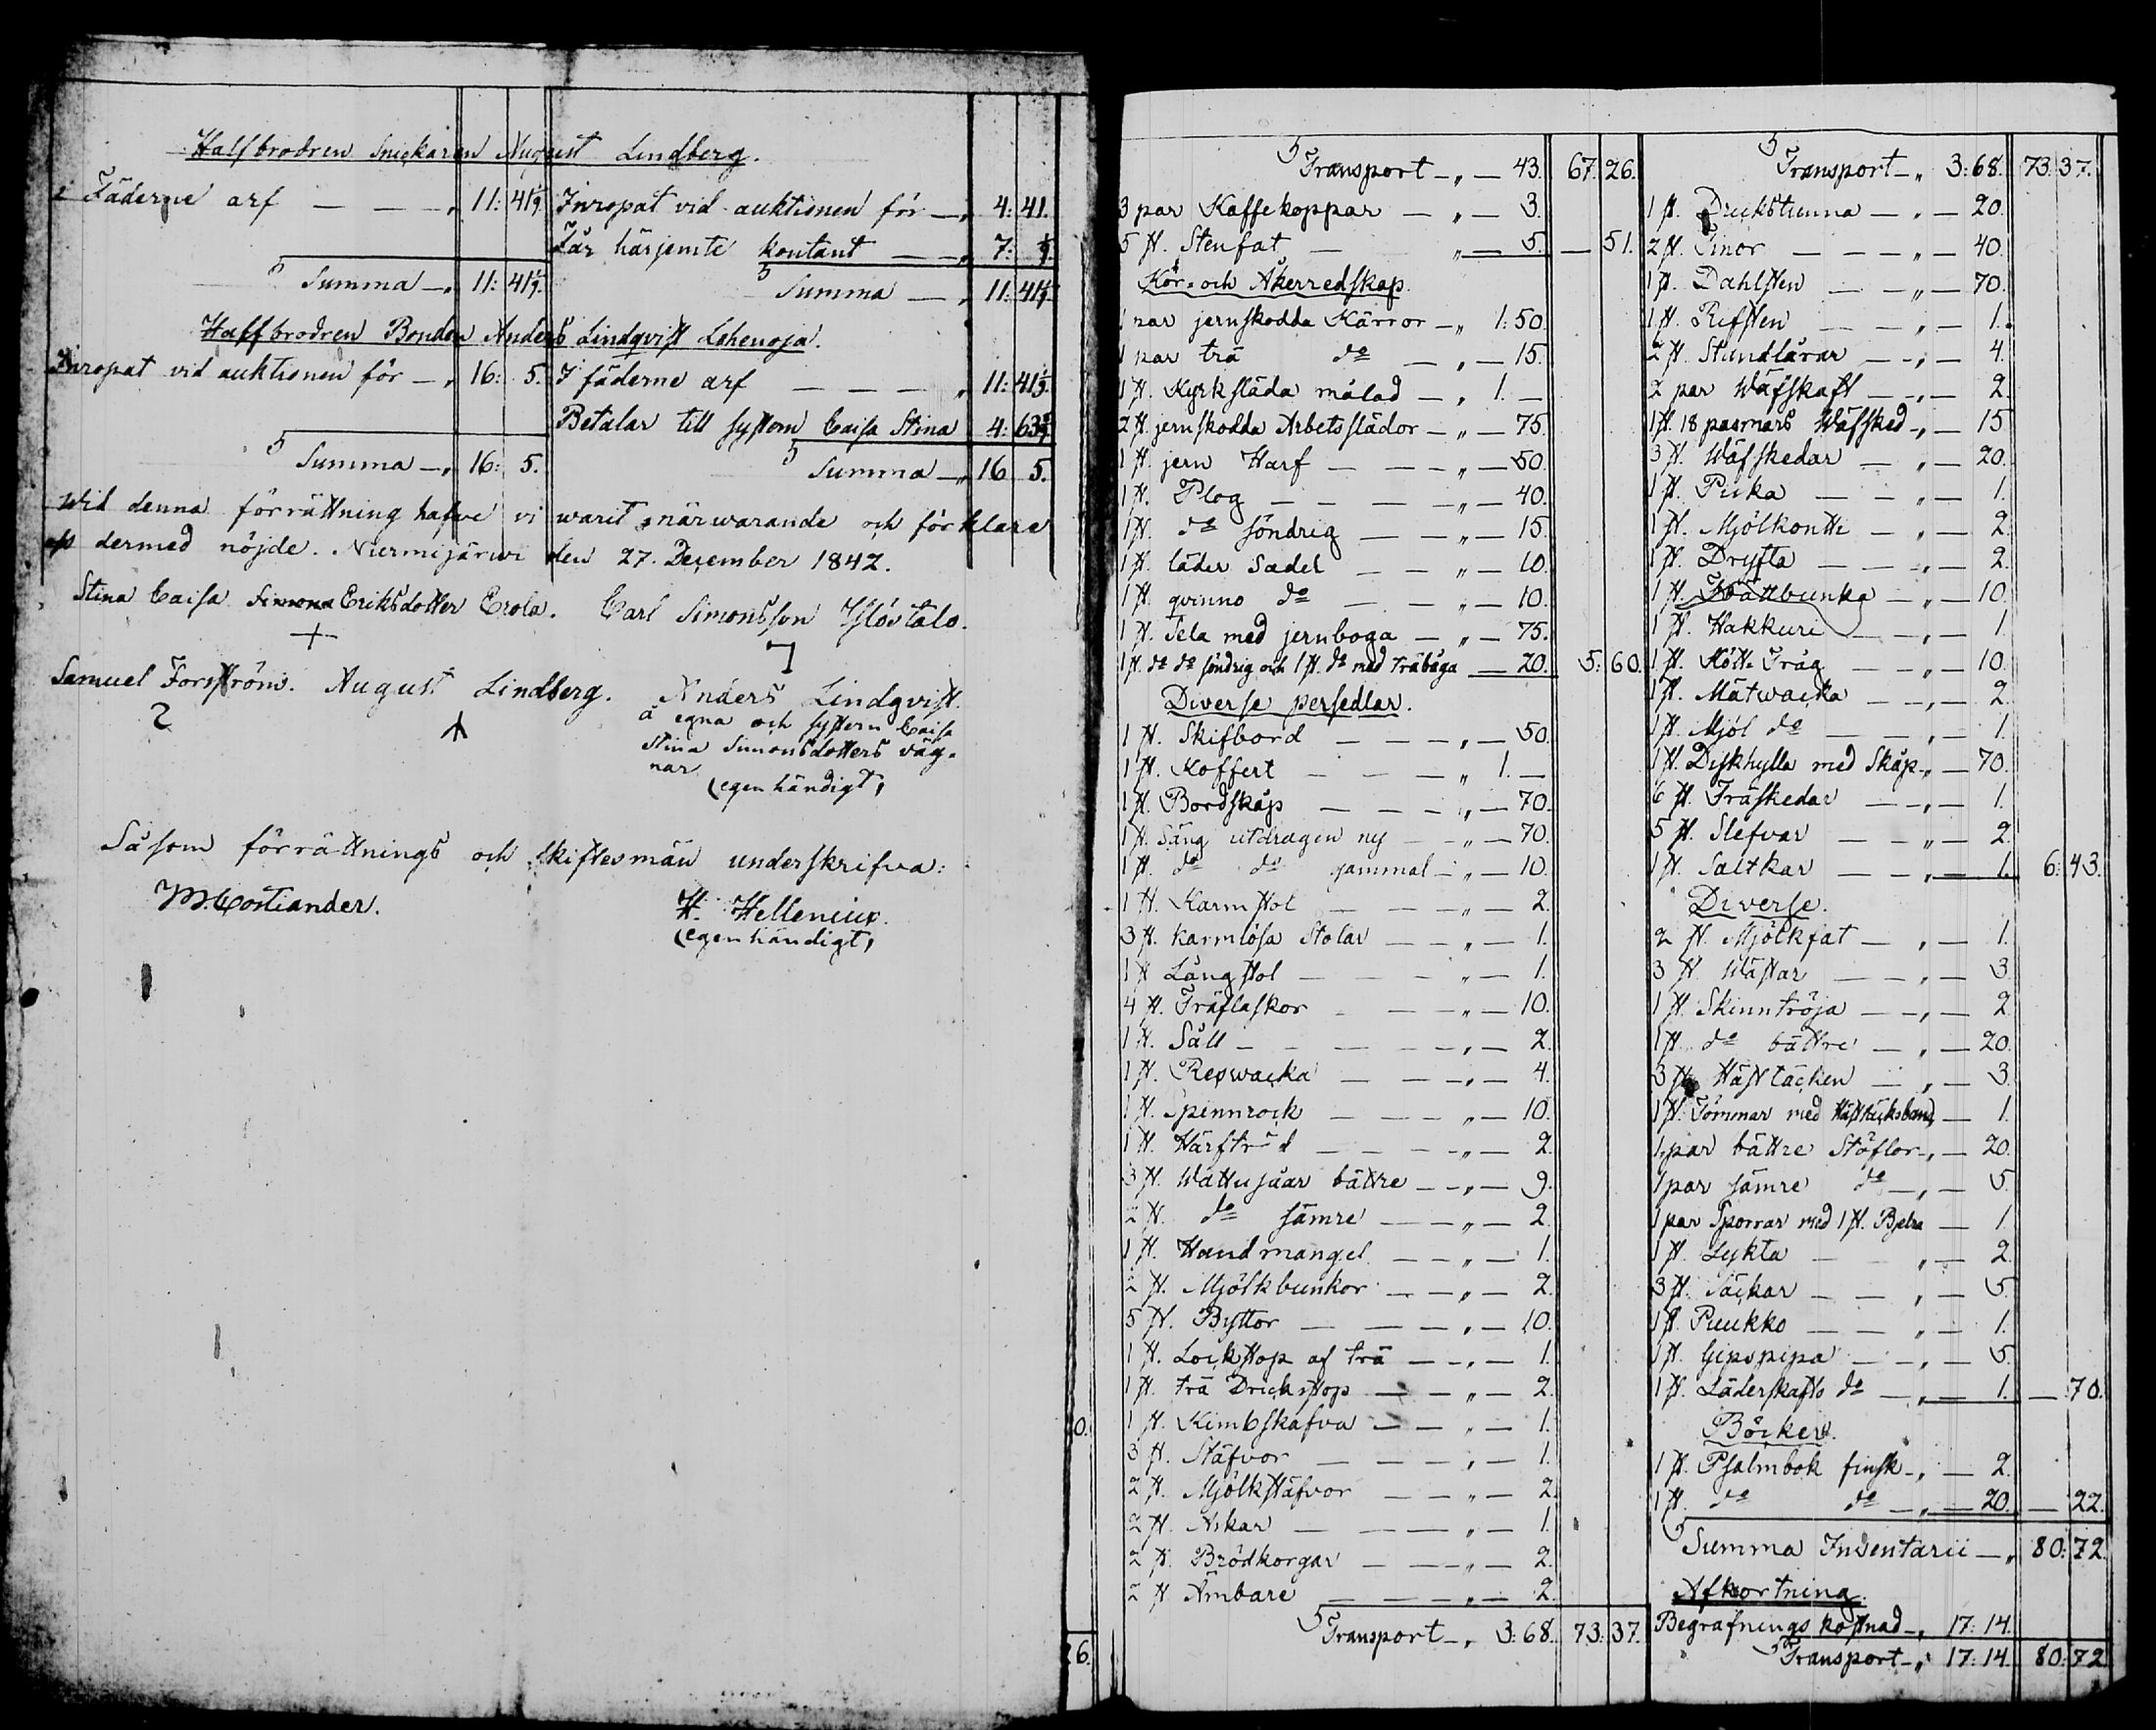 Halfbrodren Snickaren August Lindberg.
I Fäderne arf — — — „ 11: 41 1/9. Inropat vid auktionen för — „ 4: 41.
Får härjemte kontant — — „ 7: 1/9.
Summa — „ 11: 41 1/9. Summa — „ 11: 41 1/9.
Halfbrodren Bonden Anders Lindqvist Lehenoja.
Inropat vid auktionen för — „ 16: 5. I fäderne arf — — — „ 11: 41 1/9.
Betalar till systern Caisa Stina 4: 63 8/9.
Summa — „ 16: 5. Summa — „ 16 5.
Wid denna förrättning hafwe vi warit närwarande och förklare
oss dermed nöjde. Nurmijärwi den 27. December 1842.
Stina Caisa Simons Eriksdotter Erola. Carl Simonsson Yliostalo.
Samuel Forsström. August Lindberg. Anders Lindqvist.
å egna och systern Caisa
Stina Simonsdotters väg-
nar
(egenhändigt)
Såsom förrättnings och skiftesmän underskrifva:
M. Costiander. H. Hellenius.
(egenhändigt)
0.
26.
Transport — „ — 43. 67. 26.
3 par Kaffekoppar — „ — 3.
5 st. Stenfat — „ — 5. — 51.
Kör- och Åkerredskap.
1 par jernskodda Kärror — „ 1: 50.
1 par trä do — „ — 15.
1 st. Kyrksläda målad — „ 1. —
2 st. jernskodda Arbetsslädor — „ — 75.
1 st. jern Harf — — — „ — 50.
1 st. Plog — — — — „ — 40.
1 st. do söndrig — — „ — 15.
1 st. läder Sadel — — „ — 10.
1 st. qvinno do — — „ — 10.
1 st. Sela med jernboga — „ — 75.
1 st. do do söndrig och 1 st. do med träbåga — 20. 5: 60.
Diverse persedlar.
1 st. Skifbord — — — „ — 50.
1 st. Koffert — — — „ 1. —
1 st. Bordskåp — — — „ — 70.
1 st. Säng utdragen ny — „ — 70.
1 st. do do gammal — „ — 10.
1 st. Karmstol — — — „ — 2.
3 st. karmlösa Stolar — — „ — 1.
1 st. Långstol — — — „ — 1.
4 st. Träflaskor — — „ — 10.
1 st. Såll — — — — „ — 2.
1 st. Repwacka — — — „ — 4.
1 st. Spinnrock — — — „ — 10.
1 st. Härfträd — — — „ — 2.
3 st. Wattusåar bättre — — „ — 9.
2 st. do sämre — — „ — 2.
1 st. Handmangel — — „ — 1.
2 st. Mjölkbunkor — — „ — 2.
5 st. Byttor — — — „ — 10.
1 st. Lockstop af trä — — „ — 1.
1 st. trä Drickstop — — „ — 2.
1 st. Kimbskafva — — „ — 1.
3 st. Stäfvor — — — „ — 1.
2 st. Mjölkstäfvor — — „ — 2.
2 st. Askar — — — „ — 1.
2 st. Brödkorgar — — „ — 2.
2 st. Ämbare — — — „ — 2.
Transport — „ 3: 68. 73: 37.
Transport — „ 3: 68. 73: 37.
1 st. Drickstunna — „ — 20.
2 st. Tinor — — — „ — 40.
1 st. Dahlsten — — „ — 70.
1 st. Rifsten — — „ — 1.
2 st. Stundlårar — — „ — 4.
2 par Wäfskaft — — „ — 2.
1 st. 18 pasmars Wäfsked — „ — 15
3 st. Wäfskedar — „ — 20.
1 st. Piika — — „ — 1.
1 st. Mjölkontti — „ — 2.
1 st. Dryfta — — — „ — 2.
1 st. Twättbunka — „ — 10.
1 st. Hakkuri — — „ — 1.
1 st. Kött Tråg — — „ — 10.
1 st. Mätwacka — — „ — 2.
1 st. Mjöl do — — „ — 1.
1 st. Diskhylla med Skåp „ — 70.
6 st. Träskedar — — „ — 1.
5 st. Slefvar — — „ — 2.
1 st. Saltkar — — „ — 1. 6: 43.
Diverse.
2 st. Mjölkfat — „ — 1.
3 st. Wästar — — „ — 3.
1 st. Skinntröja — — „ — 2
1 st. do bättre — „ — 20.
3 st. Hästtäcken — „ — 3
1 st. Tömmar med Hästtäcksband „ — 1.
1 par bättre Stöflor „ — 20.
1 par sämre do — „ — 5.
1 par Sporrar med 1 st. Bjelra — 1.
1 st. Lykta — „ — 2.
3 st. Säckar — — „ — 5
1 st. Puukko — — „ — 1.
1 st. Gipspipa — — „ — 5.
1 st. Läderskafts do — „ — 1. — 70.
Böcker.
1 st. Psalmbok finsk „ — 2.
1 st. do do — „ — 20. — 22.
Summa Inventarii — „ 80: 72.
Afkortning.
Begrafnings kostnad „ 17: 14.
Transport — „ 17: 14. 80: 72